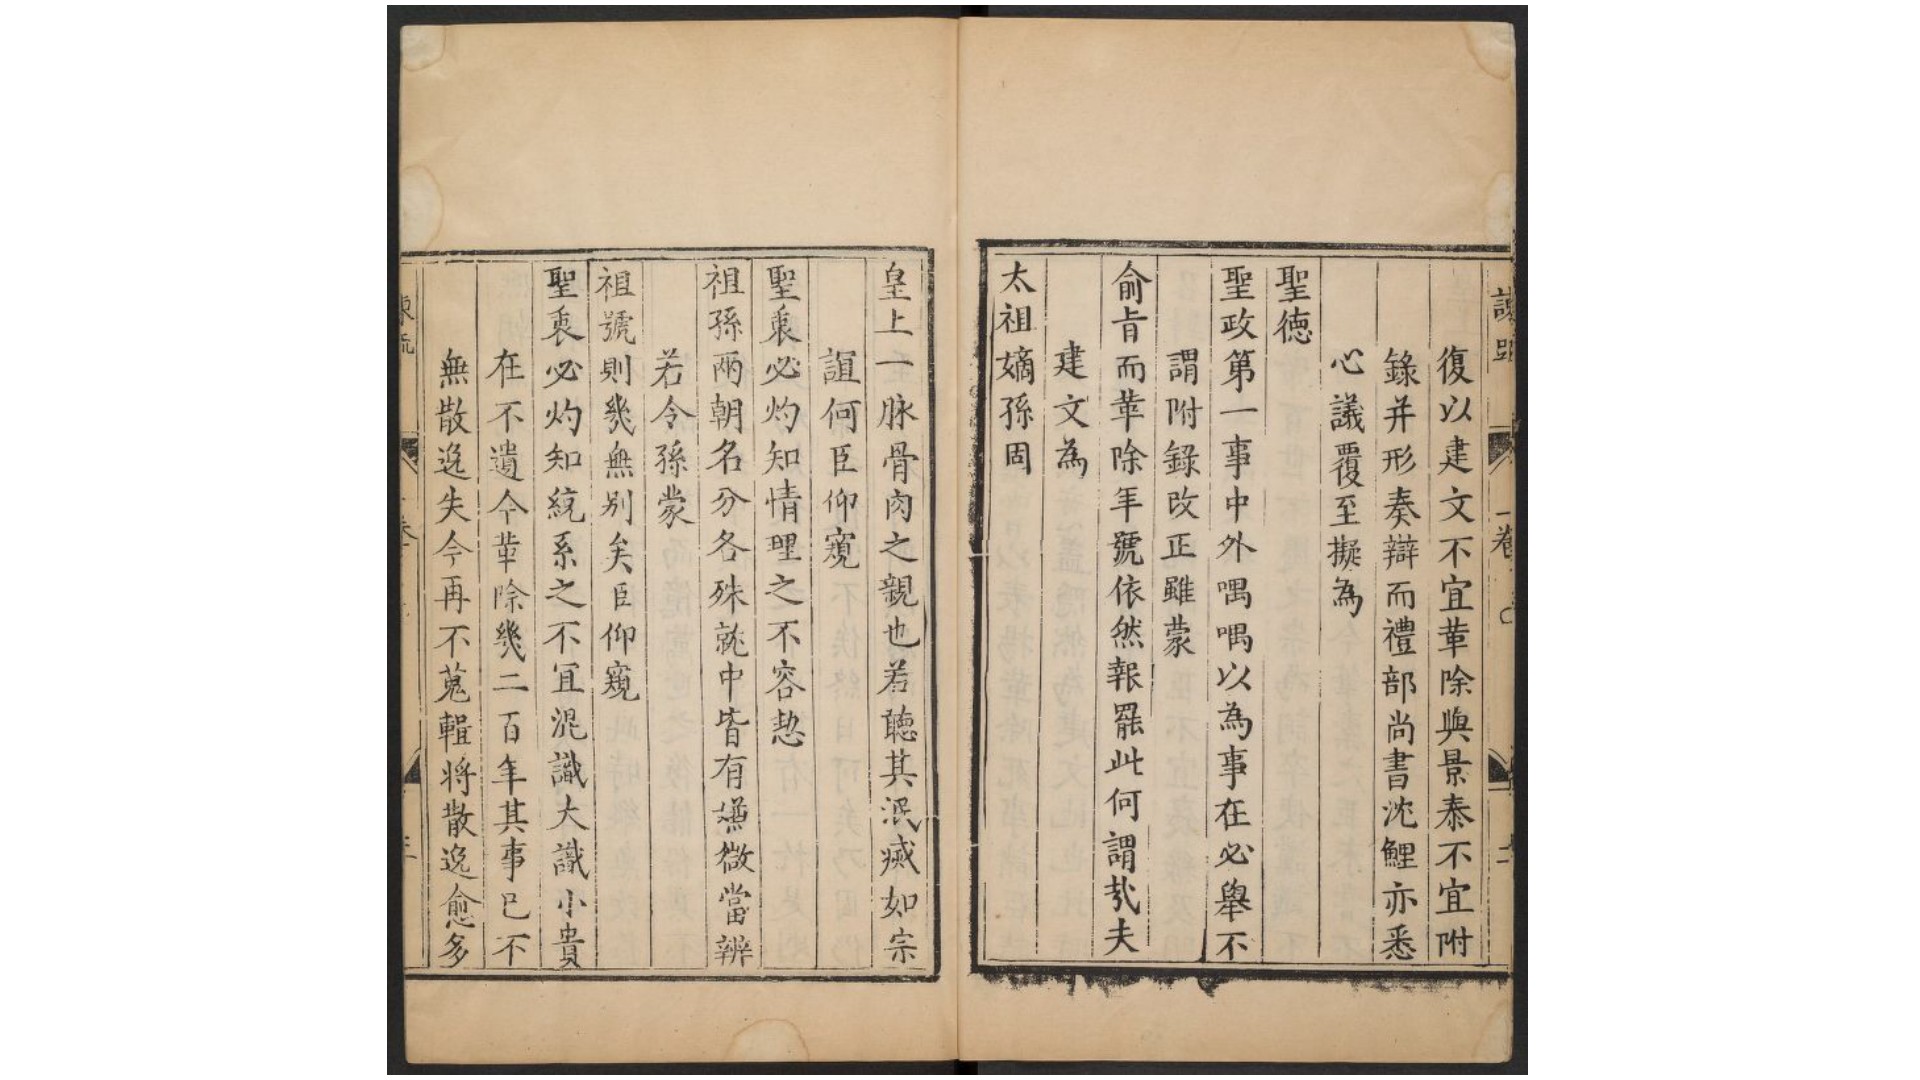 復以建文不宜革除與景泰不宜附
錄并形奏辯而禮部尚書沈鯉亦悉
心議覆至擬為
聖德
聖政第一事中外喁喁以為事在必舉不
謂附錄改正雖蒙
俞旨而革除年號依然報罷此何謂哉夫
建文為
太祖嫡孫固
皇上一脉骨肉之親也若聽其泯滅如宗
誼何臣仰窺
聖衷必灼知情理之不容恝
祖孫兩朝名分各殊就中皆有嫌微當辨
若令孫蒙
祖號則幾無別矣臣仰窺
聖衷必灼知統系之不宜混識大識小貴
在不遺今革除幾二百年其事已不
無散逸失今再不蒐輯將散逸愈多